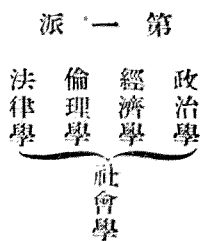 第一派
政治學
經濟學
倫理學
法律學
社會學